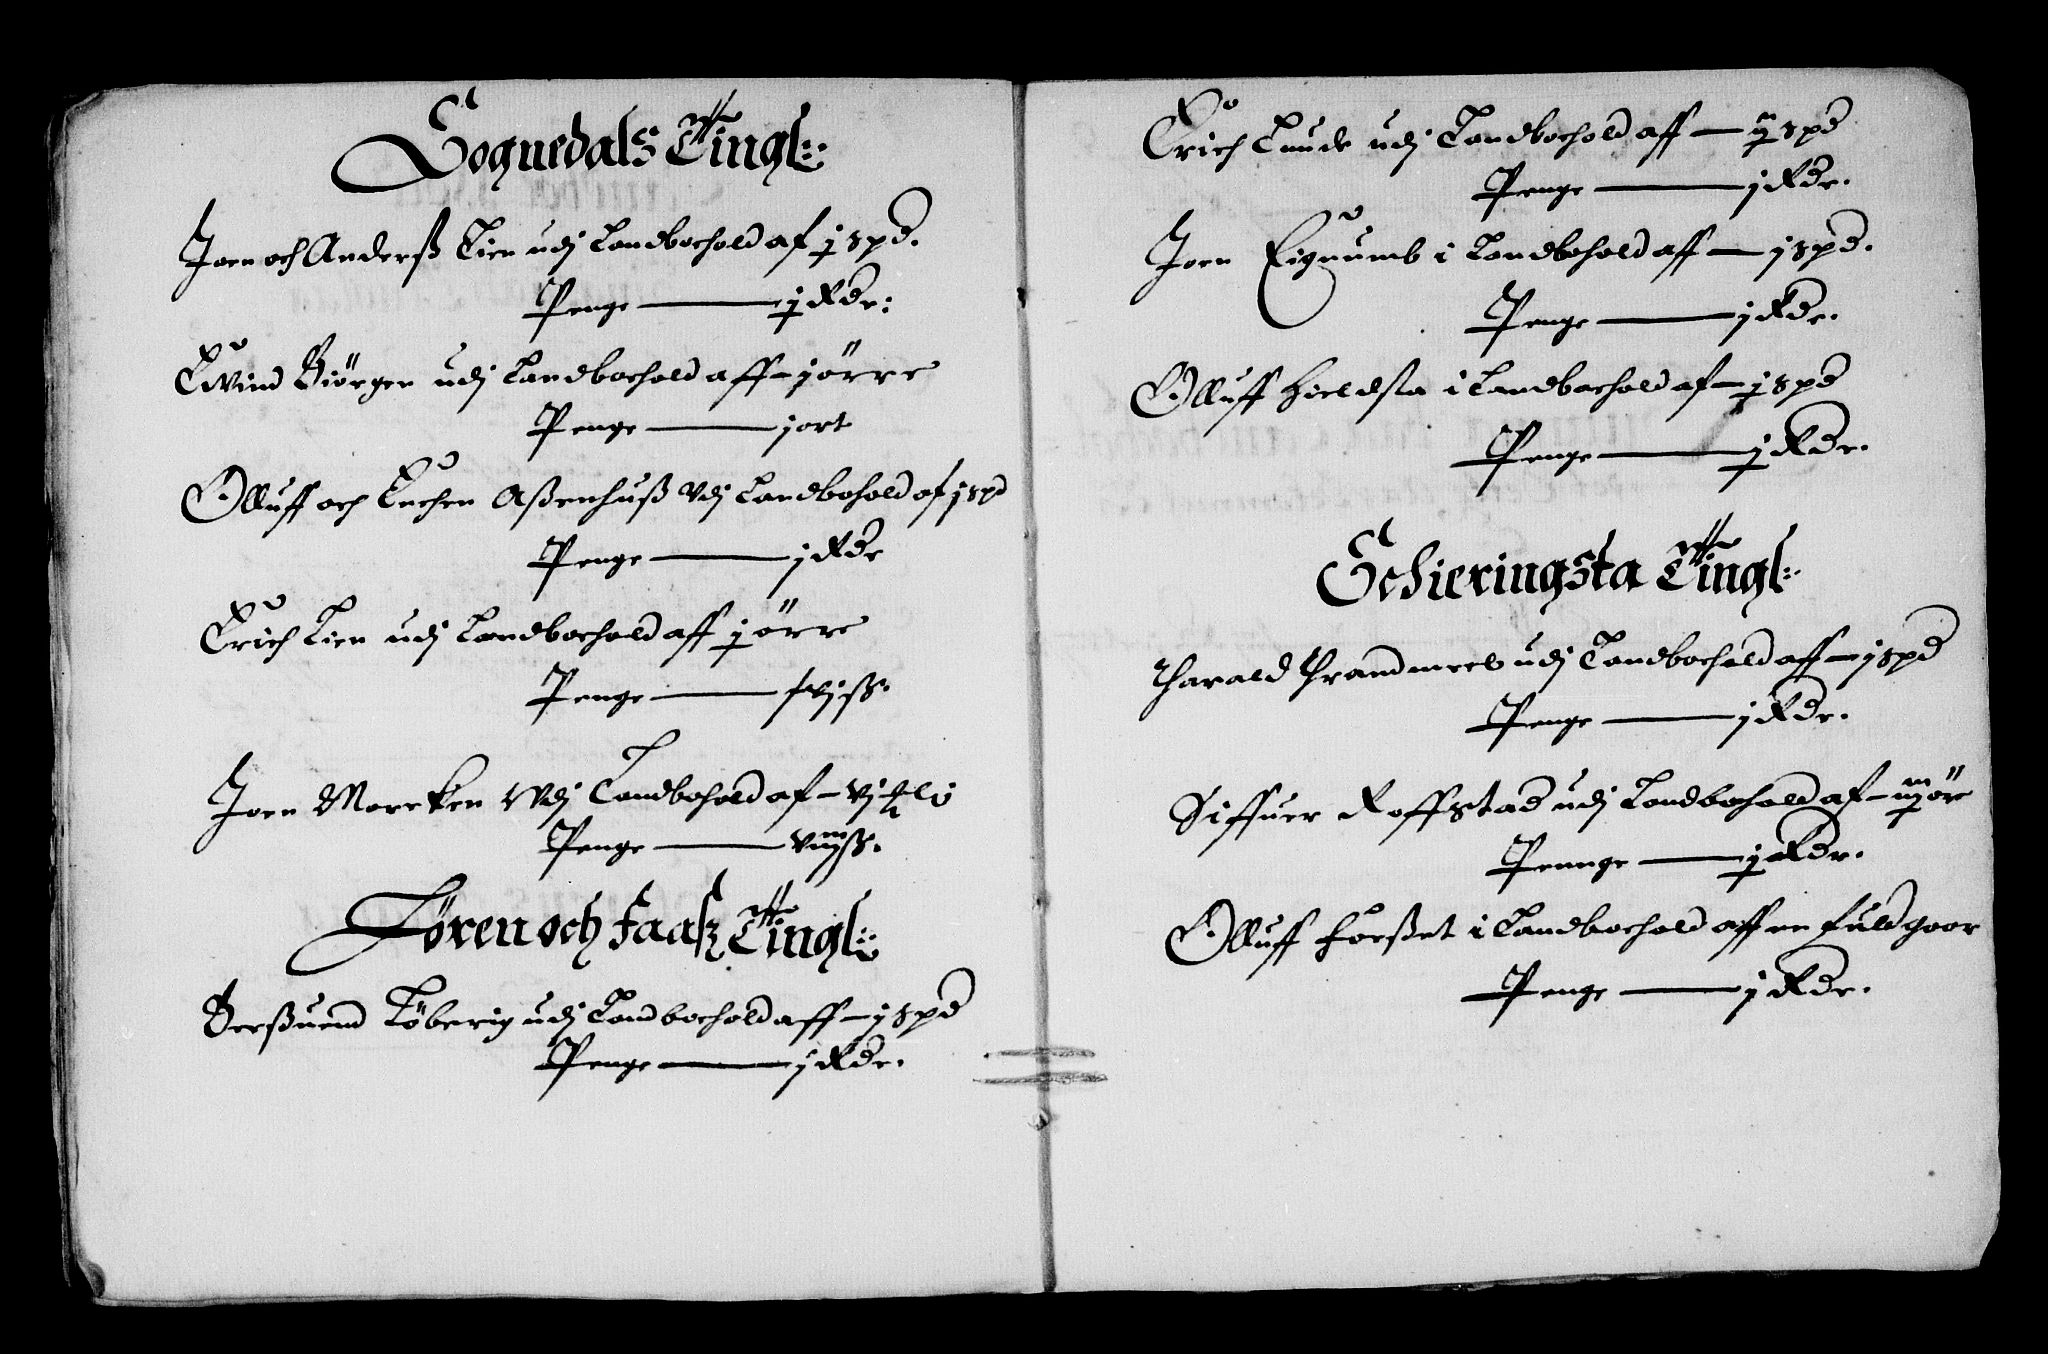 Sognedals Tingl:
Joen och Anderß Lien udj Landbochold af j spd.
Penge — j Rdr:
Evind Biörgen udj Landbochold aff — j örre
Penge — j ort
Olluff och Enchen Aßenhuß Vdj Landbohold af j spd
Penge — j Rdr
Erich Lien udj Landbochold aff j örre
Penge — ß.
Joen Morcken Udj Landbohold af — vj
Penge — viij ß.
Lören och faaß Tingl:
Berßuend Löberig udj Landbochold aff — j spd
Penge — j Rdr.
Erich Lunde udj Landbochold aff — ij spd
Penge — j Rdr.
Joen Eignumb i Landbohold aff — j spd.
Penge — j Rdr.
Olluff Hieldsta i Landbochold af — j spd
Penge — j Rdr.
Schieringsta Tingl:
Harald Thrandmeel udj Landbochold aff — j spd
Penge — j Rdr.
Siffuer Roffstad udj Landbochold af — iij ör
Pennge — j Rdr.
Olluff Forßet i Landbochold aff en fuld goor
Penge — j Rdr.